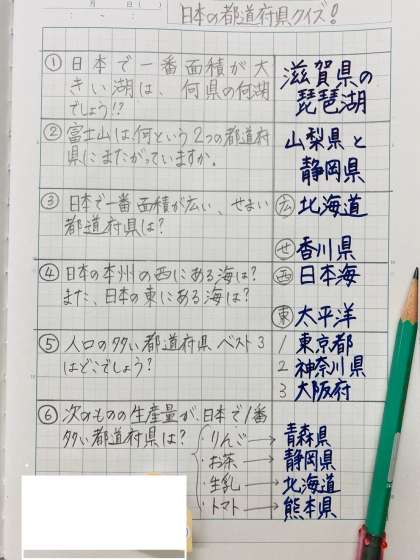 月 日( )
日本の都道府県クイズ!
① 日本で一番面積が大
きい湖は、何県の何湖
でしょう!?
滋賀県の
琵琶湖
② 富士山は何という2つの都道府
県にまたがっていますか。
山梨県と
静岡県
③ 日本で一番面積が広い、せまい
都道府県は?
広 北海道
せ 香川県
④ 日本の本州の西にある海は?
また、日本の東にある海は?
西 日本海
東 太平洋
⑤ 人口の多い都道府県ベスト3
はどこでしょう?
1 東京都
2 神奈川県
3 大阪府
⑥ 次のものの生産量が、日本で1番
多い都道府県は?
・りんご→青森県
・お茶→静岡県
・生乳→北海道
・トマト→熊本県